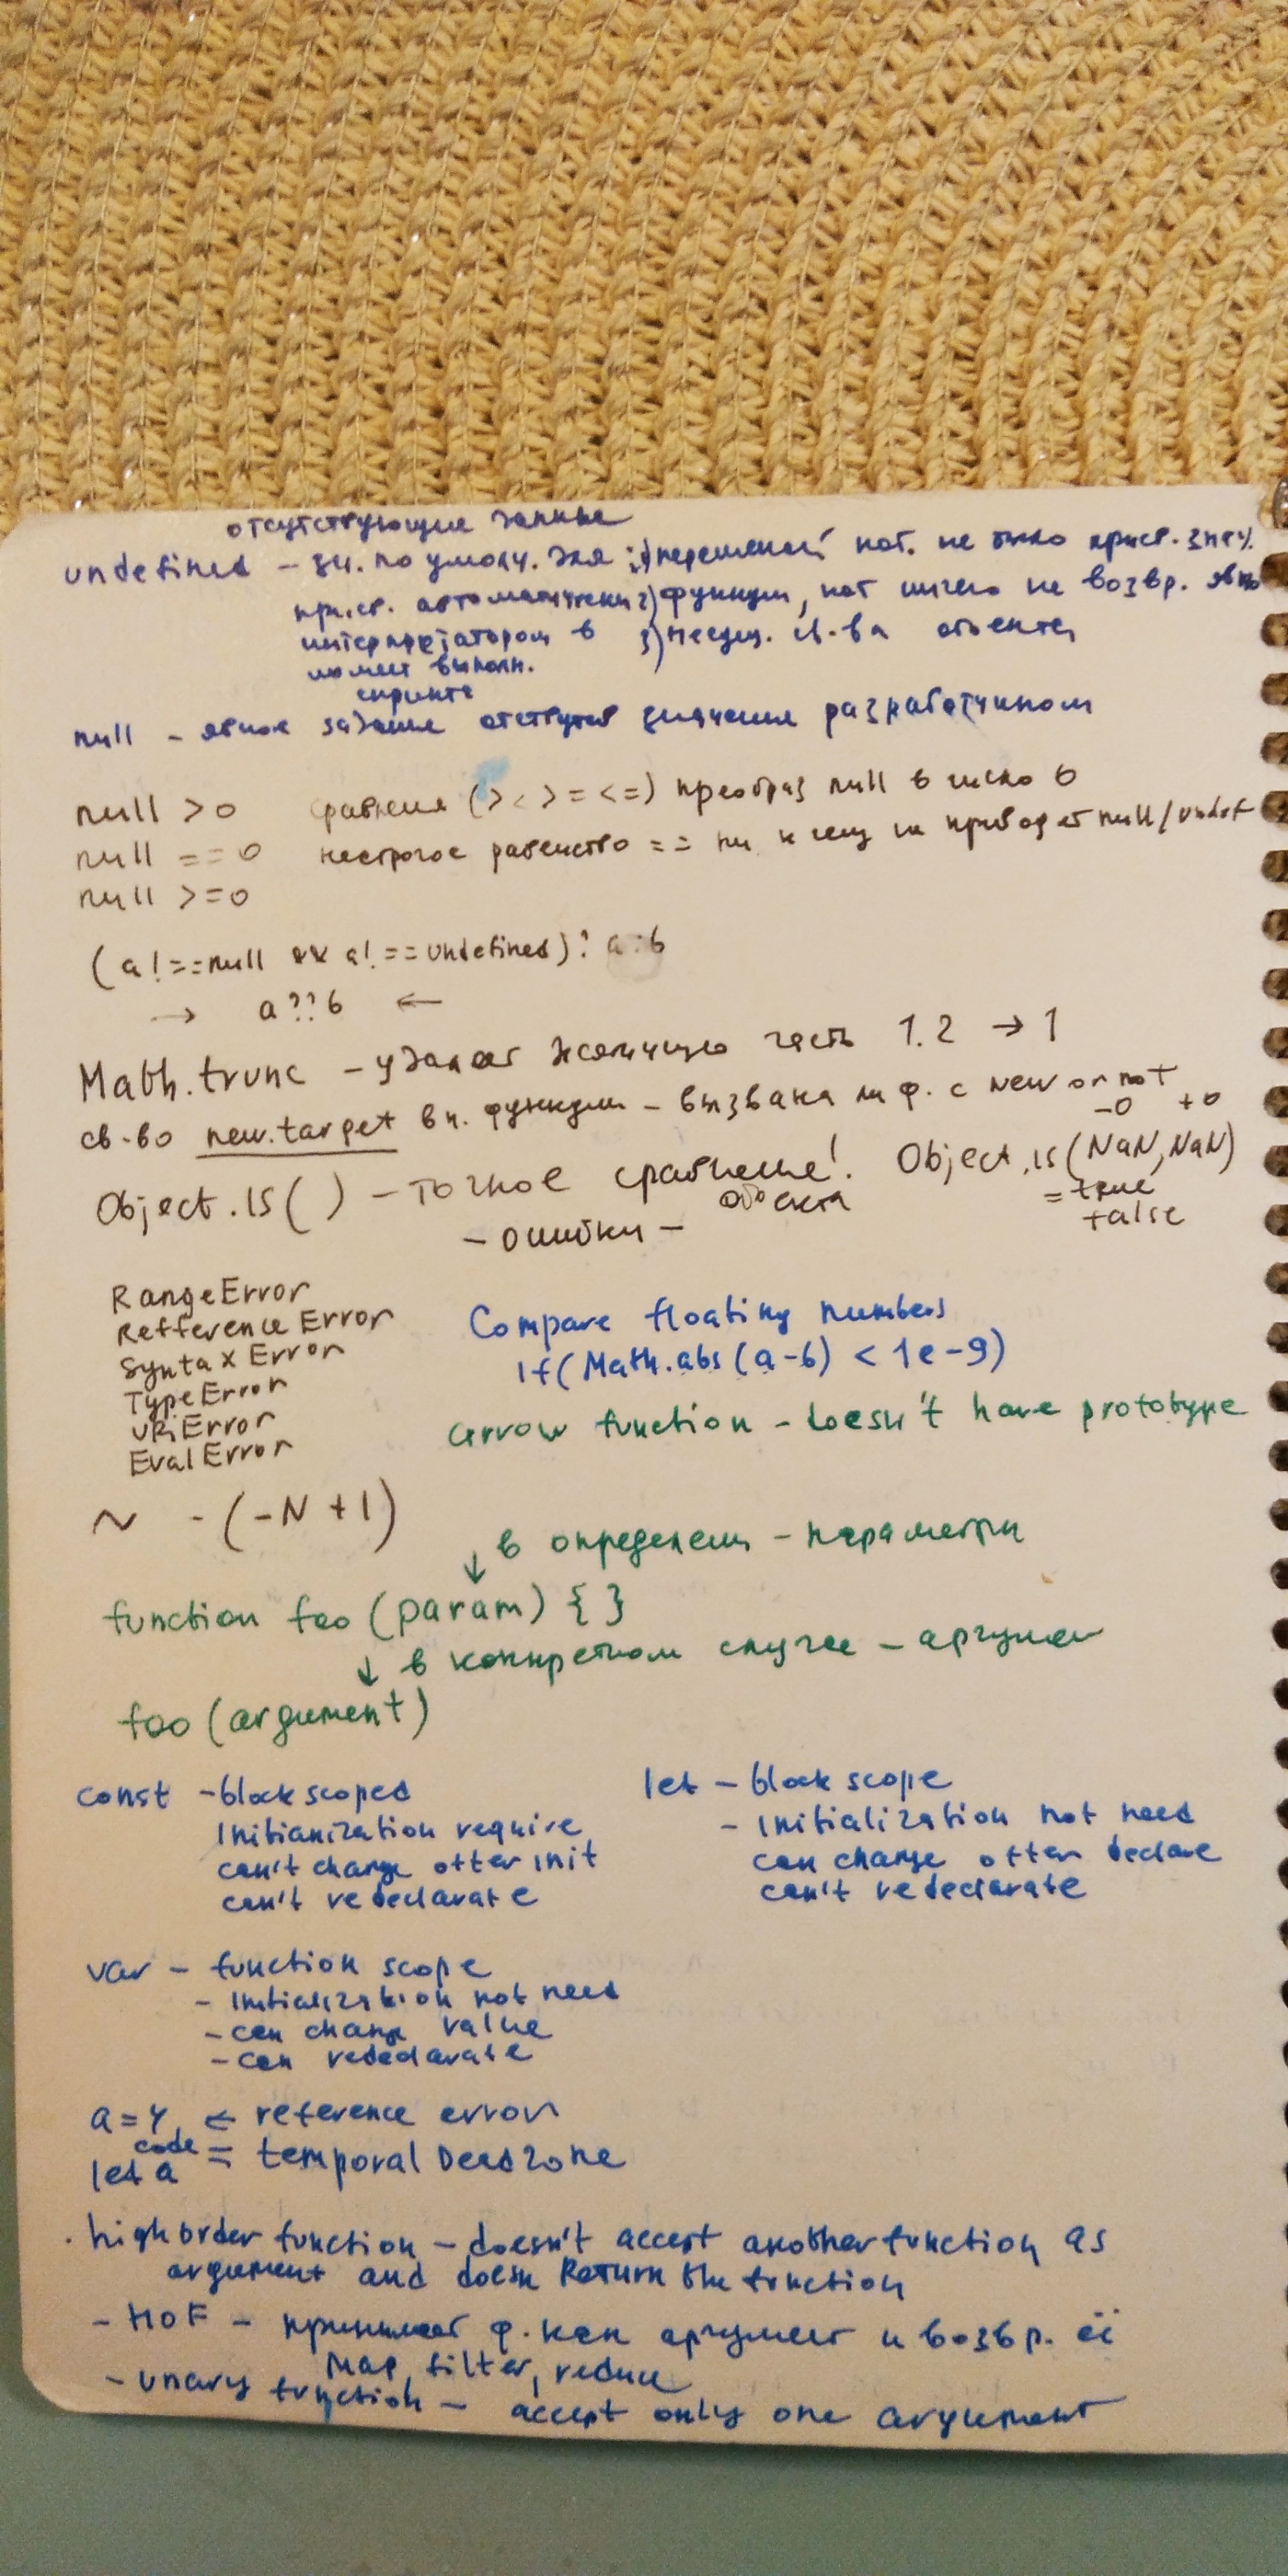 отсутствующие данные
undefined – зн. по умолч. для 1) переменной кот. не было присв. знач.
присв. автоматически 2) функции, кот ничего не возвр. явно
интерпретатором в 3) несущ. св-ва объекта
момент выполн.
скрипта
null – явное задание отсутствия значения разработчиком
null > 0 сравнения (> < >= <=) преобраз null в число 0
null == 0 нестрогое равенство == ни к чему не приводят null/undef
null >= 0
(a !== null && a! == undefined)? a : b
→ a ?? b ←
Math.trunc – удаляет десятичную часть 1.2 → 1
св-во new.target вн. функции – вызвана ли ф. с new or not
-0 +0
Object.is( ) – точное сравнение! Object.is(NaN, NaN)
объекта = true
– ошибки – false
RangeError
Refference Error
Syntax Error
TypeError
URiError
Eval Error
Compare floating numbers
if( Math.abs (a-b) < 1e-9)
arrow function – doesn't have prototype
~ -(-N + 1)
↓ в определении – параметры
function foo (param) { }
↓ в конкретном случае – аргумент
foo (argument)
const – block scoped
Initianization require
can't change after init
can't redeclarate
let – block scope
– Initialization not need
can change after declare
can't redeclarate
var – function scope
– Initialization not need
– can change value
– can redeclarate
a = 4 ← reference error
code = temporal Dead zone
let a
. high order function – doesn't accept another function as
argument and doesn Return the function
– HOF – принимает ф. как аргумент и возвр. её
Map, filter, reduce
– unary function – accept only one argument